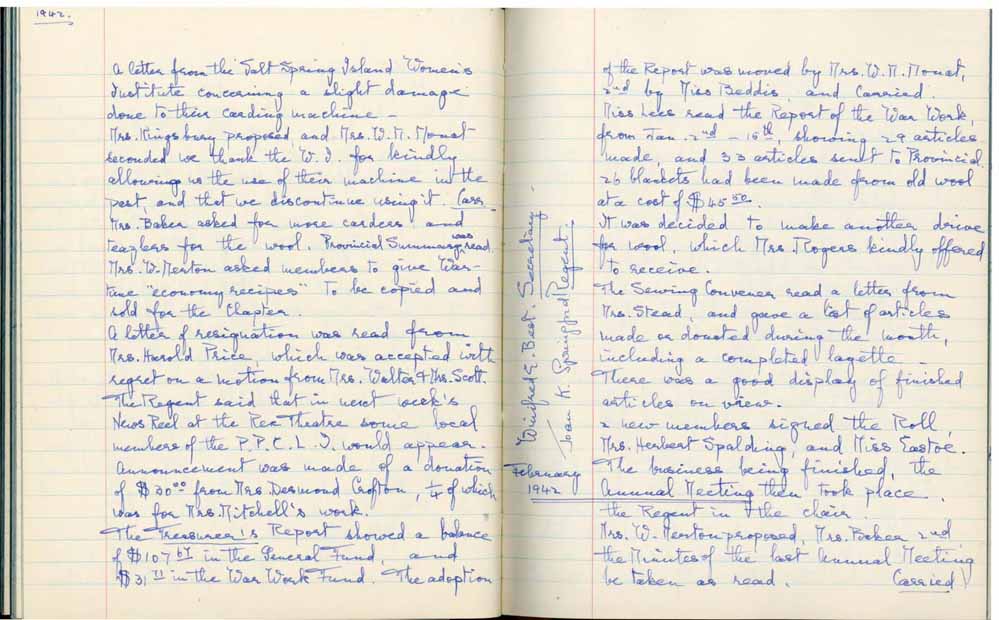 1942.
A letter from the Salt Spring Island Women's
Institute concerning a slight damage
done to their carding machine -
Mrs. Kingsbury proposed, and Mrs. W. M. Mouat
seconded we thank the W. I. for kindly
allowing us the use of their machine in the
past, and that we discontinue using it. Carr.
Mrs. Baker asked for more carders and
teazlers for the wool. Provincial Summary was read.
Mrs. W. Norton asked members to give War-
time "economy recipes" to be copied and
sold for the Chapter.
A letter of resignation was read from
Mrs. Harold Price, which was accepted with
regret on a motion from Mrs. Walter & Mrs. Scott.
The Regent said that in next week's
News Reel at the Rex Theatre some local
members of the P.P.C.L.I. would appear.
Announcement was made of a donation
of $30.00 from Mrs Desmond Crofton, 1/4 of which
was for Mrs. Mitchell's work.
The Treasurer's Report showed a balance
of $107.67 in the General Fund, and
$31.71 in the War Work Fund. The adoption
of the Report was moved by Mrs. W. M. Mouat,
2nd by Miss Beddis, and Carried.
Miss Lees read the Report of the War Work,
from Jan. 2nd - 16th, showing 29 articles
made, and 33 articles sent to Provincial.
26 blankets had been made from old wool
at a cost of $45.50.
It was decided to make another drive
for wool, which Mrs. Rogers kindly offered
to receive.
The Sewing Convener read a letter from
Mrs. Stead, and gave a list of articles
made or donated during the month,
including a completed layette -
There was a good display of finished
articles on view.
2 new members signed the Roll,
Mrs. Herbert Spalding, and Miss Eastoe.
The business being finished, the
Annual Meeting then took place,
the Regent in the chair.
Mrs. W. Norton proposed, Mrs. Baker 2nd
the Minutes of the last Annual Meeting
be taken as read. Carried
Winifred E. Best. Secretary.
Joan K. Springford Regent.
February
1942